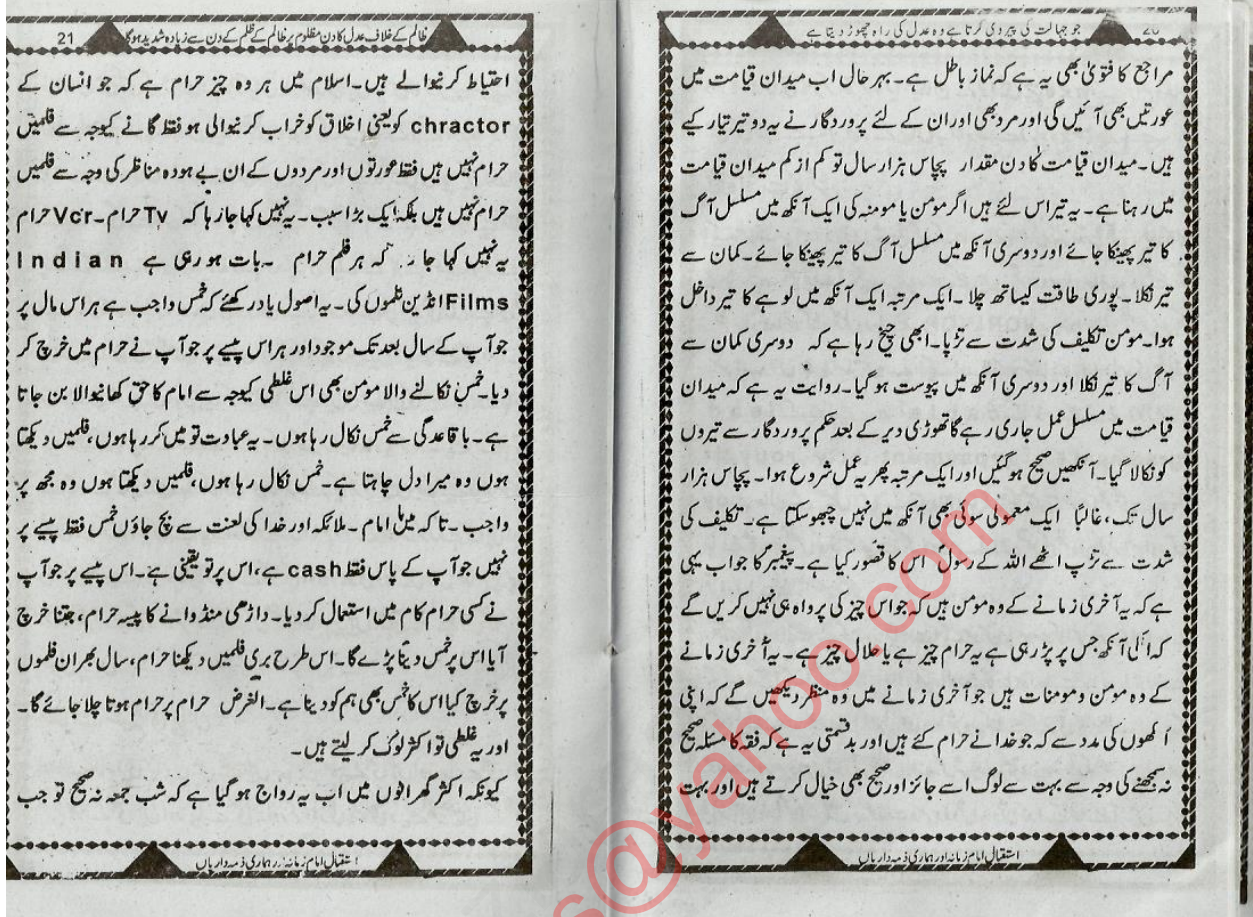 جو جہالت کی پیروی کرتا ہے وہ عدل کی راہ چھوڑ دیتا ہے
20
مراجع کا فتویٰ بھی یہ ہے کہ نماز باطل ہے۔ بہر حال اب میدان قیامت میں
عورتیں بھی آئیں گی اور مرد بھی اور ان کے لئے پروردگار نے یہ دو تیر تیار کیے
ہیں۔ میدان قیامت کا دن مقدار پچاس ہزار سال تو کم از کم میدان قیامت
میں رہنا ہے۔ یہ تیر اس لئے ہیں اگر مومن یا مومنہ کی ایک آنکھ میں مسلسل آگ
کا تیر پھینکا جائے اور دوسری آنکھ میں مسلسل آگ کا تیر پھینکا جائے۔ کمان سے
تیر نکلا۔ پوری طاقت کیساتھ چلا۔ ایک مرتبہ ایک آنکھ میں لوہے کا تیر داخل
ہوا۔ مومن تکلیف کی شدت سے تڑپا۔ ابھی چیخ رہا ہے کہ دوسری کمان سے
آگ کا تیر نکلا اور دوسری آنکھ میں پیوست ہو گیا۔ روایت یہ ہے کہ میدان
قیامت میں مسلسل عمل جاری رہے گا تھوڑی دیر کے بعد حکم پروردگار سے تیروں
کو نکالا گیا۔ آنکھیں صحیح ہو گئیں اور ایک مرتبہ پھر یہ عمل شروع ہوا۔ پچاس ہزار
سال تک، غالباً ایک معمولی سوئی بھی آنکھ میں نہیں چھو سکتا ہے۔ تکلیف کی
شدت سے تڑپ اٹھے اللہ کے رسولؐ اس کا قصور کیا ہے۔ پیغمبرؐ کا جواب یہی
ہے کہ یہ آخری زمانے کے وہ مومن ہیں کہ جو اس چیز کی پرواہ ہی نہیں کریں گے
کہ انکی آنکھ جس پر پڑ رہی ہے یہ حرام چیز ہے یا حلال چیز ہے۔ یہ آخری زمانے
کے وہ مومن و مومنات ہیں جو آخری زمانے میں وہ منظر دیکھیں گے کہ اپنی
آنکھوں کی مدد سے کہ جو خدا نے حرام کئے ہیں اور بدقسمتی یہ ہے کہ فقہ کا مسئلہ صحیح
نہ سمجھنے کی وجہ سے بہت سے لوگ اسے جائز اور صحیح بھی خیال کرتے ہیں اور بہت
استقبال امام زمانہ اور ہماری ذمہ داریاں
ظالم کے خلاف عدل کا دن مظلوم پر ظالم کے ظلم کے دن سے زیادہ شدید ہو گا
21
احتیاط کرنیوالے ہیں۔ اسلام میں ہر وہ چیز حرام ہے کہ جو انسان کے
chractor کو یعنی اخلاق کو خراب کرنیوالی ہو فقط گانے کیوجہ سے فلمیں
حرام نہیں ہیں فقط عورتوں اور مردوں کے ان بے ہودہ مناظر کی وجہ سے فلمیں
حرام نہیں ہیں بلکہ ایک بڑا سبب۔ یہ نہیں کہا جا رہا کہ Tv حرام۔ Vcr حرام
یہ نہیں کہا جا ر کہ ہر فلم حرام ۔ بات ہو رہی ہے Indian
Films انڈین فلموں کی۔ یہ اصول یاد رکھئے کہ خمس واجب ہے ہر اس مال پر
جو آپ کے سال بعد تک موجود اور ہر اس پیسے پر جو آپ نے حرام میں خرچ کر
دیا۔ خمس نکالنے والا مومن بھی اس غلطی کیوجہ سے امام کا حق کھانیوالا بن جاتا
ہے۔ باقاعدگی سے خمس نکال رہا ہوں۔ یہ عبادت تو میں کر رہا ہوں، فلمیں دیکھتا
ہوں وہ میرا دل چاہتا ہے۔ خمس نکال رہا ہوں، فلمیں دیکھتا ہوں وہ مجھ پر
واجب ۔ تاکہ میں امام ۔ ملائکہ اور خدا کی لعنت سے بچ جاؤں خمس فقط پیسے پر
نہیں جو آپ کے پاس فقط cash ہے، اس پر تو یقینی ہے۔ اس پیسے پر جو آپ
نے کسی حرام کام میں استعمال کر دیا۔ داڑھی منڈوانے کا پیسہ حرام، جتنا خرچ
آیا اس پر خمس دینا پڑے گا۔ اس طرح بری فلمیں دیکھنا حرام، سال بھر ان فلموں
پر خرچ کیا اس کا خمس بھی ہم کو دینا ہے۔ الغرض حرام پر حرام ہوتا چلا جائے گا۔
اور یہ غلطی تو اکثر لوگ کر لیتے ہیں۔
کیونکہ اکثر گھرانوں میں اب یہ رواج ہو گیا ہے کہ شب جمعہ نہ صحیح تو جب
استقبال امام زمانہ اور ہماری ذمہ داریاں
s@yahoo.com